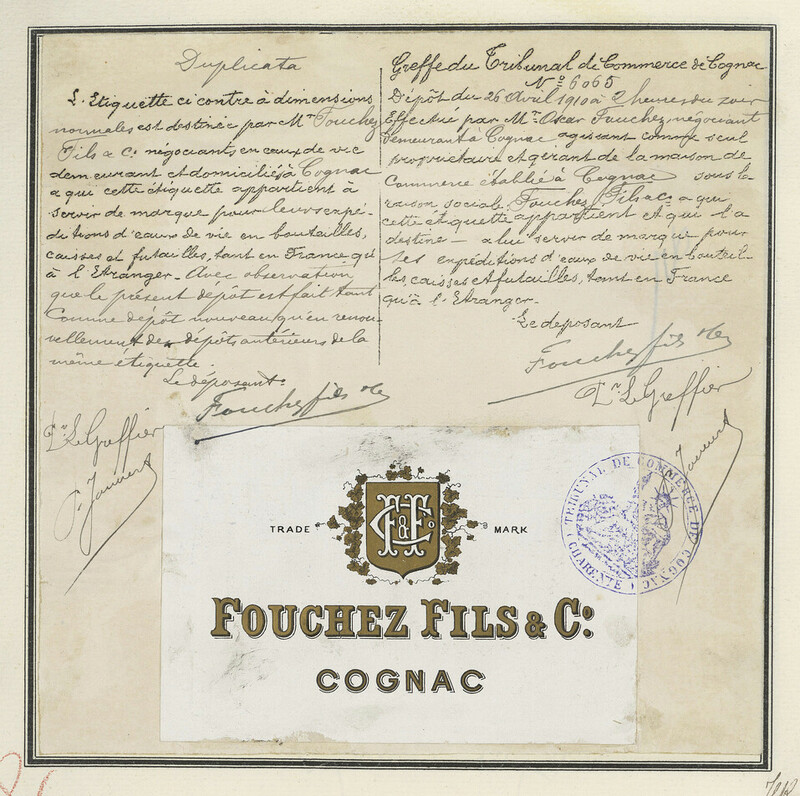 Duplicata
L'Etiquette ci contre à dimensions
normales est destinée par Mr Fouchez
Fils & Co négociants en eaux de vie
demeurant et domiciliés à Cognac
a qui cette étiquette appartient à
servir de marque pour leurs expé-
ditions d'eaux de vie en bouteilles,
caisses et futailles, tant en France qu'
à l'Etranger. Avec observation
que le présent dépôt est fait tant
comme dépôt nouveau qu'en renou-
vellement des dépôts antérieurs de la
même étiquette.
Le déposant:
Fouchez fils & Co
Le Greffier
Greffe du Tribunal de Commerce de Cognac
No 6065
Dépôt du 26 Avril 1910 à 2 heures du soir
Effectué par Mr Oscar Fouchez, négociant
demeurant à Cognac agissant comme seul
propriétaire et gérant de la maison de
Commerce établie à Cognac sous la
raison sociale: Fouchez Fils & Co a qui
cette étiquette appartient et qui l'a
destine — a lui servir de marque pour
ses expéditions d'eaux de vie en bouteil-
les caisses et futailles, tant en France
qu'à l'Etranger.
Le déposant
Fouchez fils & Co
Le Greffier
TRADE MARK
F&F Co
FOUCHEZ FILS & Co.
COGNAC
TRIBUNAL DE COMMERCE DE COGNAC
(CHARENTE)